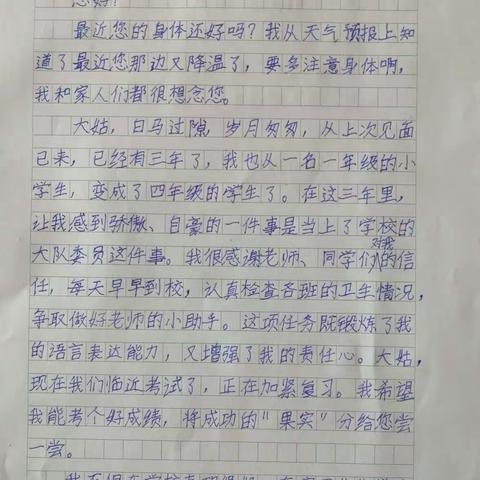 您好！
最近您的身体还好吗？我从天气预报上知
道了最近您那边又降温了，要多注意身体啊，
我和家人们都很想念您。
大姑，白马过隙，岁月匆匆，从上次见面
已来，已经有三年了，我也从一名一年级的小
学生，变成了四年级的学生了。在这三年里，
让我感到骄傲、自豪的一件事是当上了学校的
大队委员这件事。我很感谢老师、同学们对我的信
任，每天早早到校，认真检查各班的卫生情况，
争取做好老师的小助手。这项任务既锻炼了我
的语言表达能力，又增强了我的责任心。大姑，
现在我们临近考试了，正在加紧复习。我希望
我能考个好成绩，将成功的“果实”分给您尝
一尝。